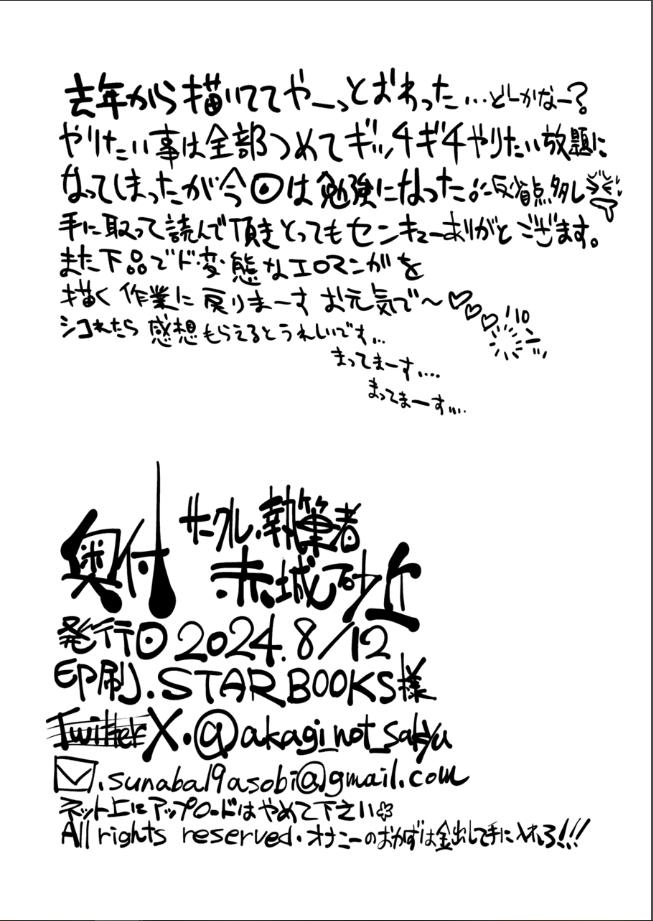 去年から描いててやーっとおわった…どしかなー?
やりたい事は全部つめてギッチギチやりたい放題に
なってしまったが今回は勉強になった。に反省点多し
手に取って読んで頂きとってもセンキューありがとございます。
また下品でド変態なエロマンガを
描く作業に戻りまーすお元気で〜♡♡♡
シコれたら感想もらえるとうれしいです…
まってまーす…
まってまーす…
奥付
サークル.執筆者
赤城砂丘
発行日2024.8/12
印刷.STARBOOKS様
Twitter X.@akagi_not_sakyu
.sunaba19asobi@gmail.com
ネット上にアップロードはやめて下さい
All rights reserved.オナニーのおかずは金出して手に入れろ!!!